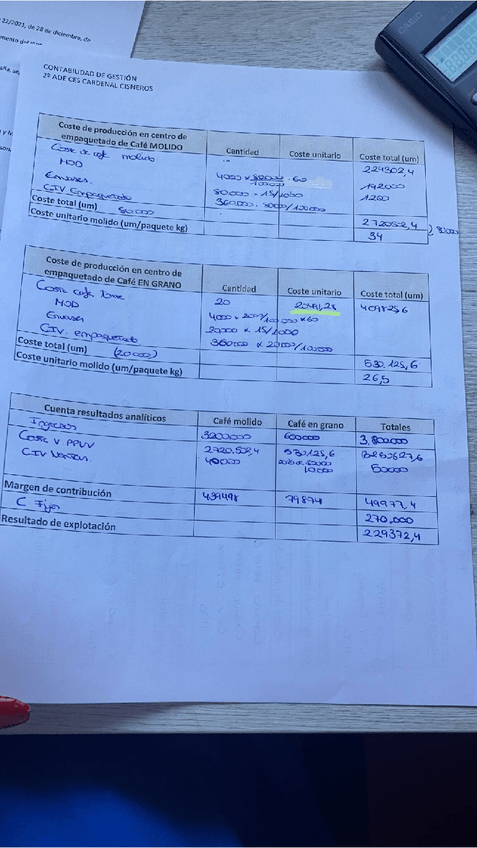 22/2021, de 28 de diciembre, de
CASIO
CONTABILIDAD DE GESTIÓN
2º ADE CES CARDENAL CISNEROS
Coste de producción en centro de empaquetado de Café MOLIDO Cantidad Coste unitario Coste total (um)
Coste de café molido
MOD 4000 × 80000/100000 · 60 192000
Envases 80.000 × 15/1000 1200
CIV Empaquetado 360.000 · 8000/100000
Coste total (um) 80.000
Coste unitario molido (um/paquete kg) 34
Coste de producción en centro de empaquetado de Café EN GRANO Cantidad Coste unitario Coste total (um)
Coste café base 20 2049,28
MOD
Envases 20000 × 15/1000
CIV. empaquetado 360000 × 20000/100000
Coste total (um) (20000) 530.125,6
Coste unitario molido (um/paquete kg) 26,5
Cuenta resultados analíticos Café molido Café en grano Totales
Ingresos 3200000 600000 3.800.000
Coste V PPVV 530125,6
CIV Ventas 40000 10000 50000
Margen de contribución 439498 79874 49977,4
C Fijos 270.000
Resultado de explotación 229372,4